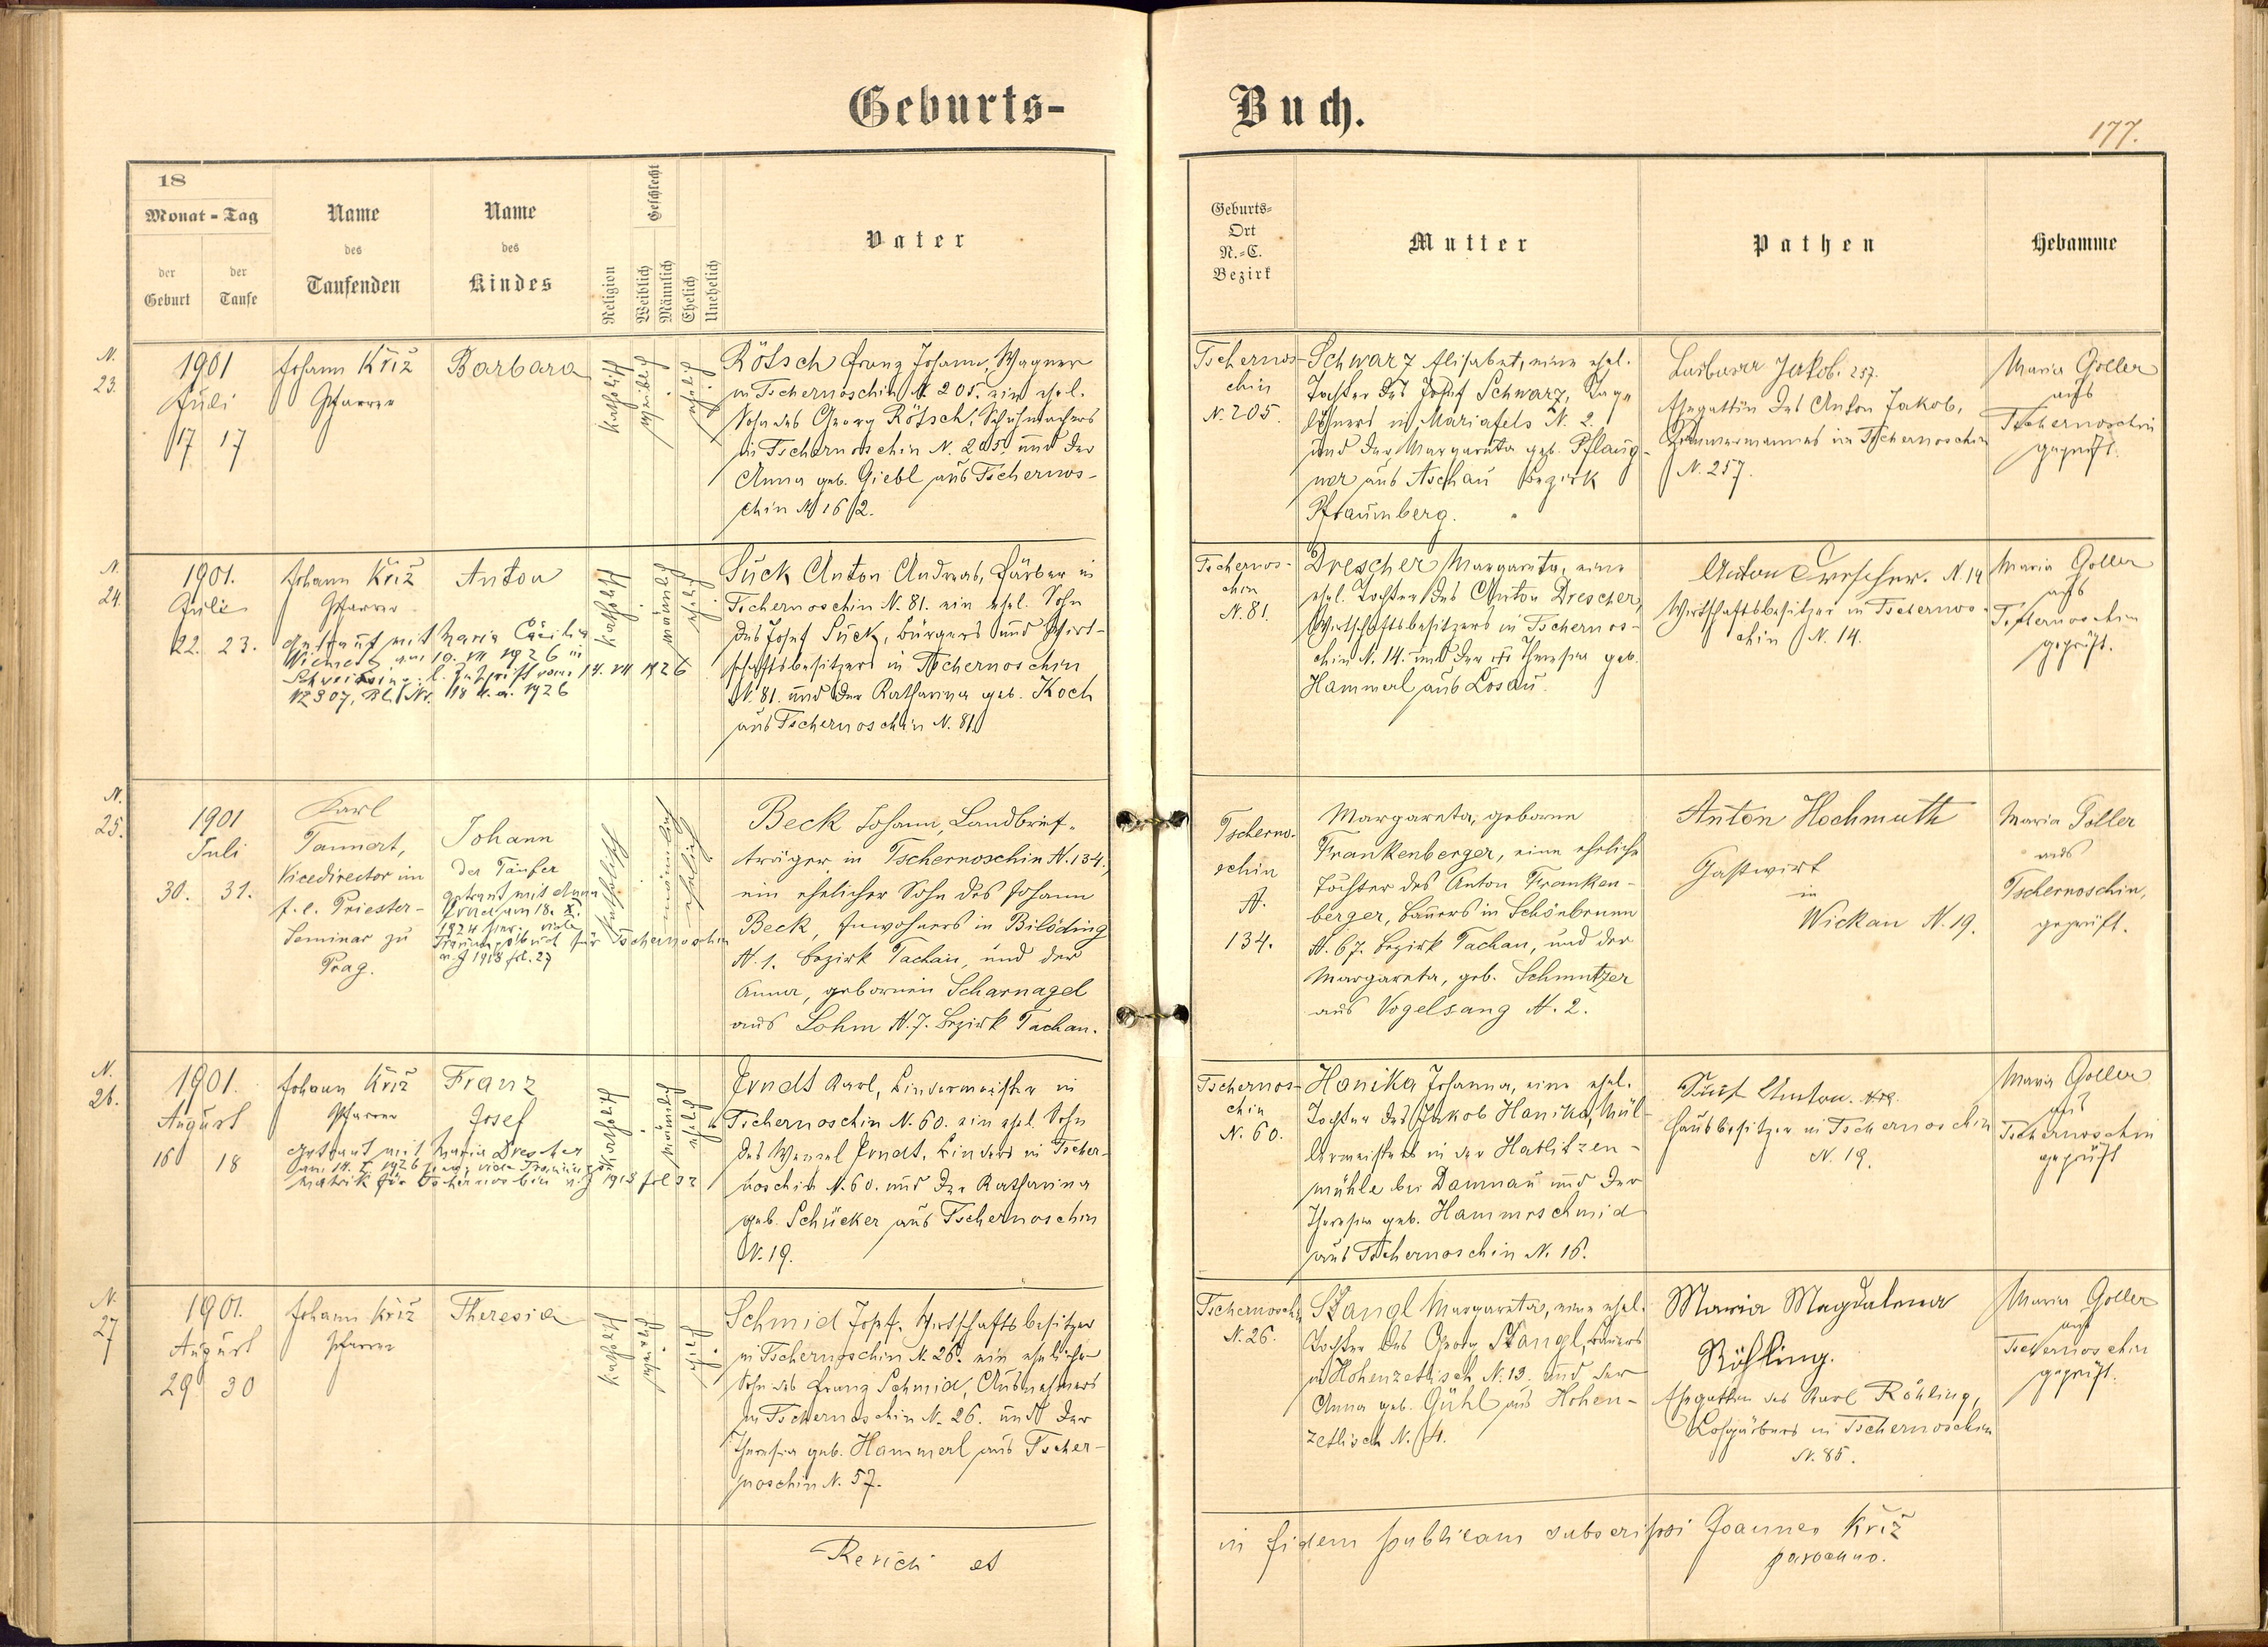 Geburts-
Buch.
177.
18
Monat-Tag
der Geburt
der Taufe
Name des Taufenden
Name des Kindes
Religion
Geschlecht
Weiblich
Männlich
Ehelich
Unehelich
Vater
Geburts-Ort N.-C. Bezirk
Mutter
Pathen
Hebamme
N. 23.
1901
Juli
17 17
Johann Kříž
Pfarrer
Barbara
katholisch
weiblich
ehelich
Rötsch Franz Johann, Wagner
in Tschernoschin N. 205. ein ehel.
Sohn des Georg Rötsch, Schuhmachers
in Tschernoschin N. 205. und der
Anna geb. Giebl aus Tschernos-
chin N 162.
Tschernos-
chin
N. 205.
Schwarz Elisabet, eine ehel.
Tochter des Josef Schwarz, Tag-
löhners in Mariafels N. 2.
und der Margareta geb. Pflaug-
ner aus Aschau Bezirk
Pfraumberg.
Barbara Jakob. 257.
Ehegattin des Anton Jakob,
Zimmermannes in Tschernoschin
N. 257.
Maria Goller
aus
Tschernoschin
geprüft.
N. 24.
1901.
Juli
22. 23.
Johann Kříž
Pfarrer
Anton
getraut mit Maria Cäcilia
am 10. VII 1926 in
14. VII 1926
N 2307, 1926
katholisch
männlich
ehelich
Suck Anton Andreas, Färber in
Tschernoschin N. 81. ein ehel. Sohn
des Josef Suck, Bürgers und Wirt-
schaftsbesitzers in Tschernoschin
N. 81. und der Katharina geb. Koch
aus Tschernoschin N. 81.
Tschernos-
chin
N. 81.
Drescher Margareta, eine
ehel. Tochter des Anton Drescher,
Wirtschaftsbesitzers in Tschernos-
chin N. 14. und der Theresia geb.
Hammerl aus Losau.
Anton Drescher. N. 14
Wirtschaftsbesitzer in Tschernos-
chin N. 14.
Maria Goller
aus
Tschernoschin
geprüft.
N. 25.
1901
Juli
30. 31.
Karl
Tannert,
Vicedirector im
f. e. Priester-
Seminar zu
Prag.
Johann
der Täufer
getraut mit Anna
am 18. X.
1924 hier; vide
Trauungsbuch für Tschernoschin
1918 fol. 27
katholisch
männlich
ehelich
Beck Johann, Landbrief-
träger in Tschernoschin N. 134,
ein ehelicher Sohn des Johann
Beck, Inwohners in Bilöding
N. 1. Bezirk Tachau, und der
Anna, gebornen Scharnagel
aus Lohm N. 7. Bezirk Tachau.
Tscherno-
schin
N.
134.
Margareta, geborne
Frankenberger, eine eheliche
Tochter des Anton Franken-
berger, Bauers in Schönbrunn
N. 67. Bezirk Tachau, und der
Margareta, geb. Schmutzer
aus Vogelsang N. 2.
Anton Hochmuth
Gastwirt
in
Wickau N. 19.
Maria Goller
aus
Tschernoschin,
geprüft.
N. 26.
1901.
August
16 18
Johann Kříž
Pfarrer
Franz
Josef
getraut mit Maria Drescher
am 14. 1926 hier, vide Trauungs-
matrik für Tschernoschin 1918 fol 32
katholisch
männlich
ehelich
Arndt Karl, Bindermeister in
Tschernoschin N. 60. ein ehel. Sohn
des Wenzel Arndt, Binders in Tscher-
noschin N. 60. und der Katharina
geb. Schücker aus Tschernoschin
N. 19.
Tschernos-
chin
N. 60.
Hanika Johanna, eine ehel.
Tochter des Jakob Hanika, Mül-
lermeisters in der Hablitzen-
mühle bei Damnau und der
Theresia geb. Hammerschmid
aus Tschernoschin N. 16.
Anton. N 19.
Hausbesitzer in Tschernoschin
N. 19.
Maria Goller
aus
Tschernoschin
geprüft
N. 27
1901.
August
29. 30
Johann Kříž
Pfarrer
Theresia
katholisch
weiblich
ehelich
Schmid Josef, Wirtschaftsbesitzer
in Tschernoschin N. 26. ein ehelicher
Sohn des Franz Schmid, Ausnehmers
in Tschernoschin N. 26. und der
Theresia geb. Hammerl aus Tscher-
noschin N. 57.
Tschernoschin
N. 26.
Stangl Margareta, eine ehel.
Tochter des Georg Stangl, Bauers
in Hohenzetlisch N. 13. und der
Anna geb. Gühl aus Hohen-
zetlisch N. 4.
Maria Magdalena
Röhling.
Ehegattin des Karl Röhling,
Lohgärbers in Tschernoschin
N. 85.
Maria Goller
aus
Tschernoschin
geprüft.
et
in fidem publicam subscripsi Joannes Kříž
parochus.